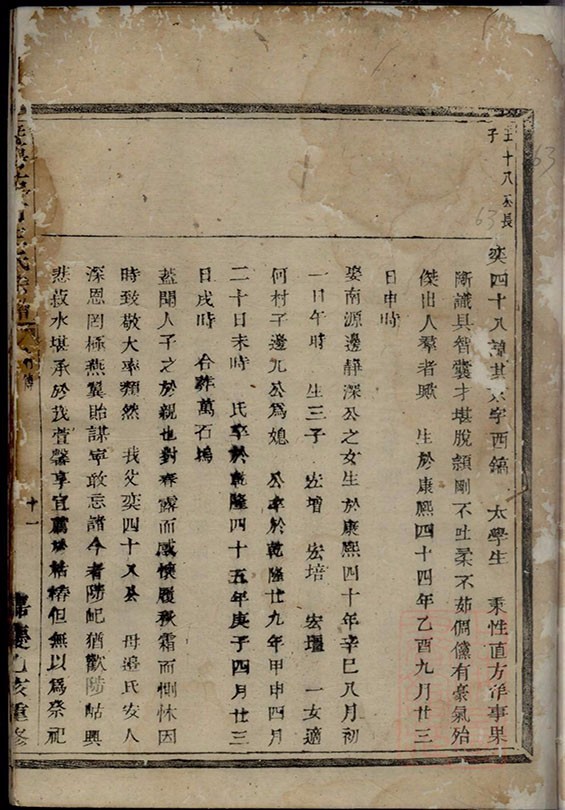 王十八公長
子
奕四十八諱其字西鎬 太學生 秉性直方作事果
斷識具智囊才堪脫穎剛不吐柔不茹倜儻有豪氣殆
傑出人羣者歟 生於康熙四十四年乙酉九月廿三
日申時
娶南源邊靜深公之女生於康熙四十年辛巳八月初
一日午時 生三子 宏增 宏培 宏壇 一女適
何村子邊九公爲媳 公卒於乾隆廿九年甲申四月
二十日未時 氏卒於乾隆四十五年庚子四月廿三
日戌時 合葬萬石塢
蓋聞人子之於親也對春露而感懷履秋霜而惻怵因
時致敬大率類然 我父奕四十八公 母邊氏安人
深恩罔極燕翼貽謀寧敢忘諸今者陟屺猶歡陟岵興
悲菽水堪承於我萱馨享宜薦於祜椿但無以爲祭祀
氏宗譜
十一
嘉慶乙亥重修
63
63